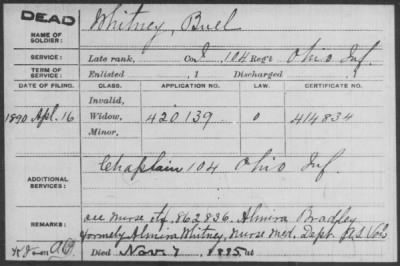 DEAD
NAME OF SOLDIER: Whitney, Buel
SERVICE: Late rank, Co. I, 104 Reg't Ohio Inf.
TERM OF SERVICE: Enlisted , 1 Discharged , 1
DATE OF FILING. CLASS. APPLICATION NO. LAW. CERTIFICATE NO.
Invalid,
1890 Apl. 16 Widow, 420139 0 414834
Minor,
ADDITIONAL SERVICES: Chaplain 104 Ohio Inf.
REMARKS: see Nurse ctf. 862,836. Almira Bradley
formerly Almira Whitney, Nurse Med. Dept. U.S. Vols
Died Nov. 7, 1885, at